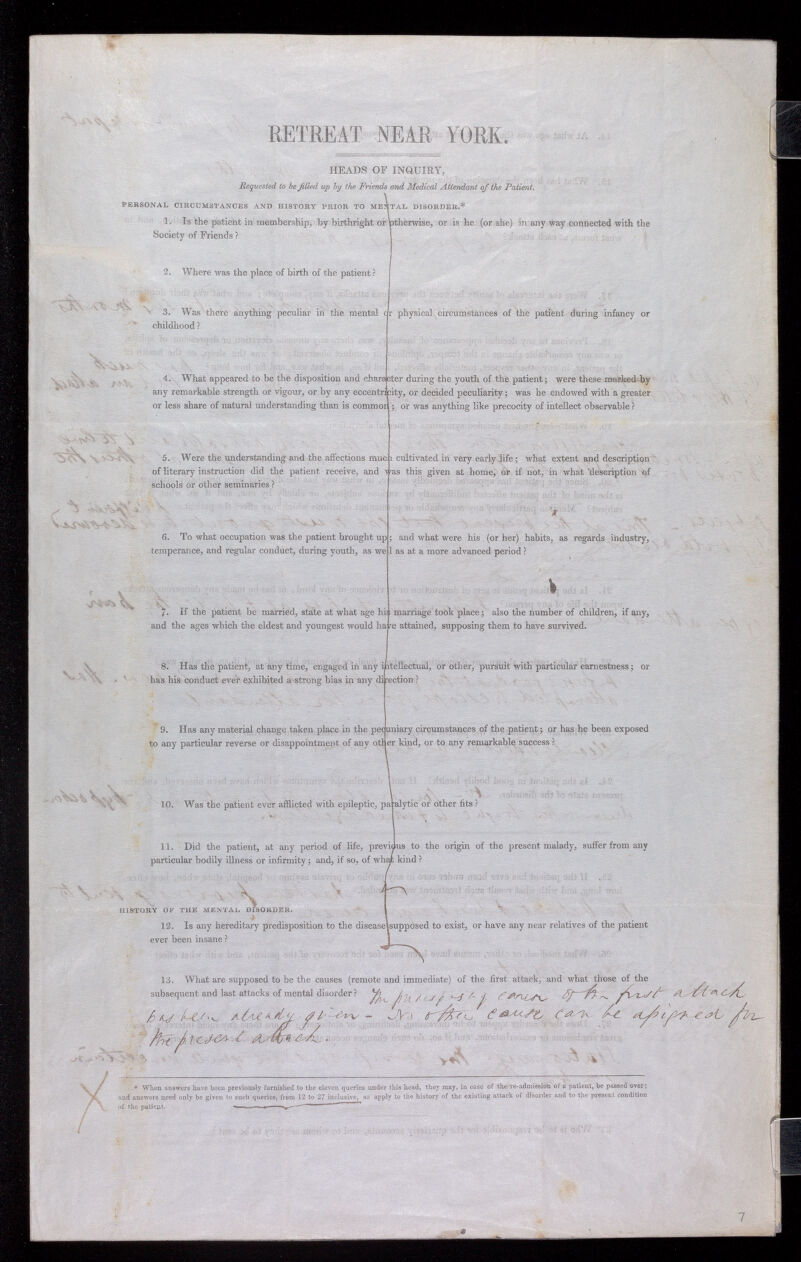 RETREAT NEAR YORK.
HEADS OF INQUIRY,
Requested to be filled up by the Friends and Medical Attendant of the Patient.
PERSONAL CIRCUMSTANCES AND HISTORY PRIOR TO MENTAL DISORDER.*
1. Is the patient in membership, by birthright or otherwise, or is he (or she) in any way connected with the
Society of Friends?
2. Where was the place of birth of the patient?
3. Was there anything peculiar in the mental or physical circumstances of the patient during infancy or
childhood?
4. What appeared to be the disposition and character during the youth of the patient; were these marked by
any remarkable strength or vigour, or by any eccentricity, or decided peculiarity; was he endowed with a greater
or less share of natural understanding than is common; or was anything like precocity of intellect observable?
5. Were the understanding and the affections much cultivated in very early life; what extent and description
of literary instruction did the patient receive, and was this given at home, or if not, in what description of
schools or other seminaries?
6. To what occupation was the patient brought up; and what were his (or her) habits, as regards industry,
temperance, and regular conduct, during youth, as well as at a more advanced period?
7. If the patient be married, state at what age his marriage took place; also the number of children, if any,
and the ages which the eldest and youngest would have attained, supposing them to have survived.
8. Has the patient, at any time, engaged in any intellectual, or other, pursuit with particular earnestness; or
has his conduct ever exhibited a strong bias in any direction?
9. Has any material change taken place in the pecuniary circumstances of the patient; or has he been exposed
to any particular reverse or disappointment of any other kind, or to any remarkable success?
10. Was the patient ever afflicted with epileptic, paralytic or other fits?
11. Did the patient, at any period of life, previous to the origin of the present malady, suffer from any
particular bodily illness or infirmity; and, if so, of what kind?
HISTORY OF THE MENTAL DISORDER.
12. Is any hereditary predisposition to the disease supposed to exist, or have any near relatives of the patient
ever been insane?
13. What are supposed to be the causes (remote and immediate) of the first attack, and what those of the
subsequent and last attacks of mental disorder? The predisposing cause of the first attack
has been already given - No other cause can be assigned for
the present attack.
* When answers have been previously furnished to the eleven queries under this head, they may, in case of the re-admission of a patient, be passed over;
and answers need only be given to such queries, from 12 to 27 inclusive, as apply to the history of the existing attack of disorder and to the present condition
of the patient.
7